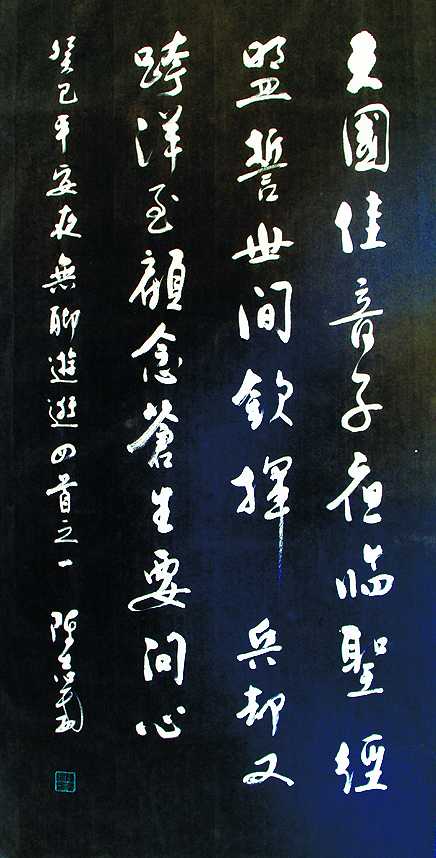 天國佳音子夜臨聖經
盟誓世間欽揮兵却又
跨洋至顧念蒼生要問心
癸巳平安夜無聊遊四首之一